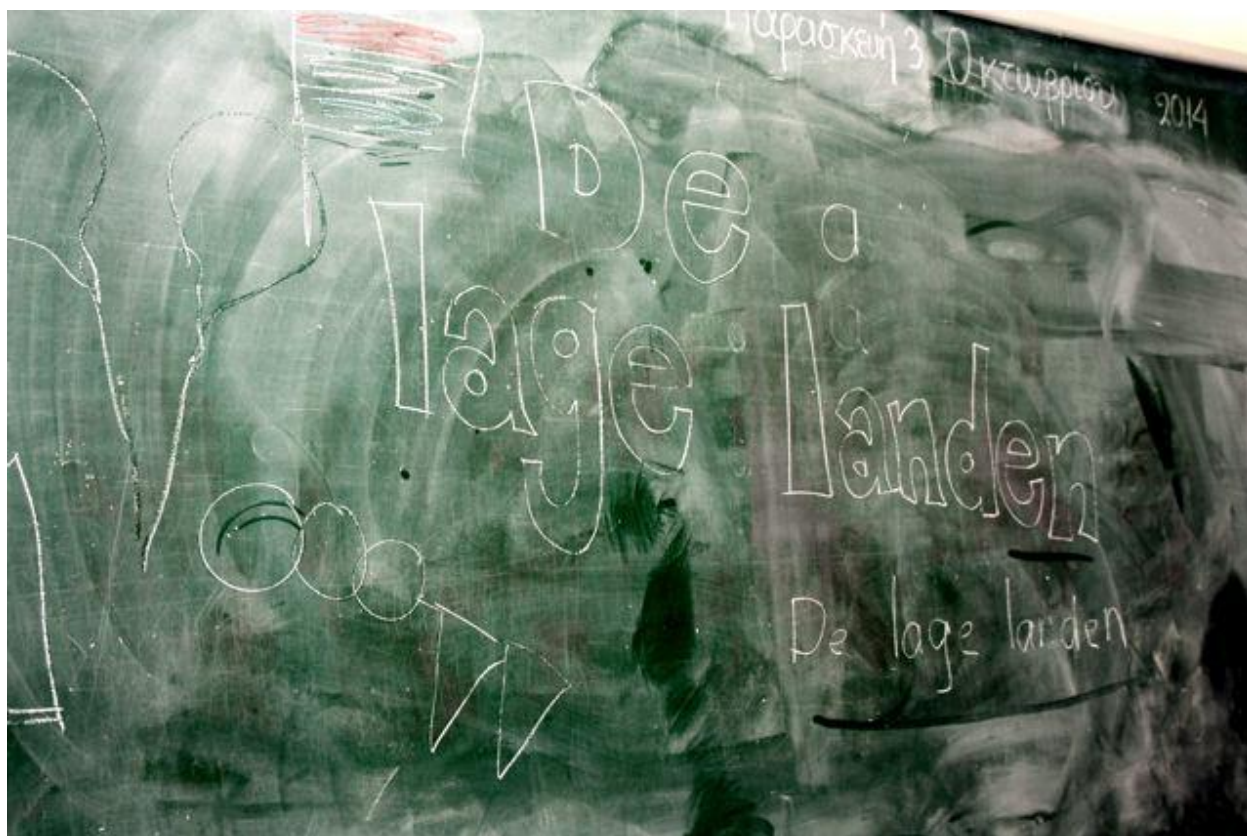 Παρασκευή 3 Οκτωβρίου 2014
De
a
lage landen
De lage landen